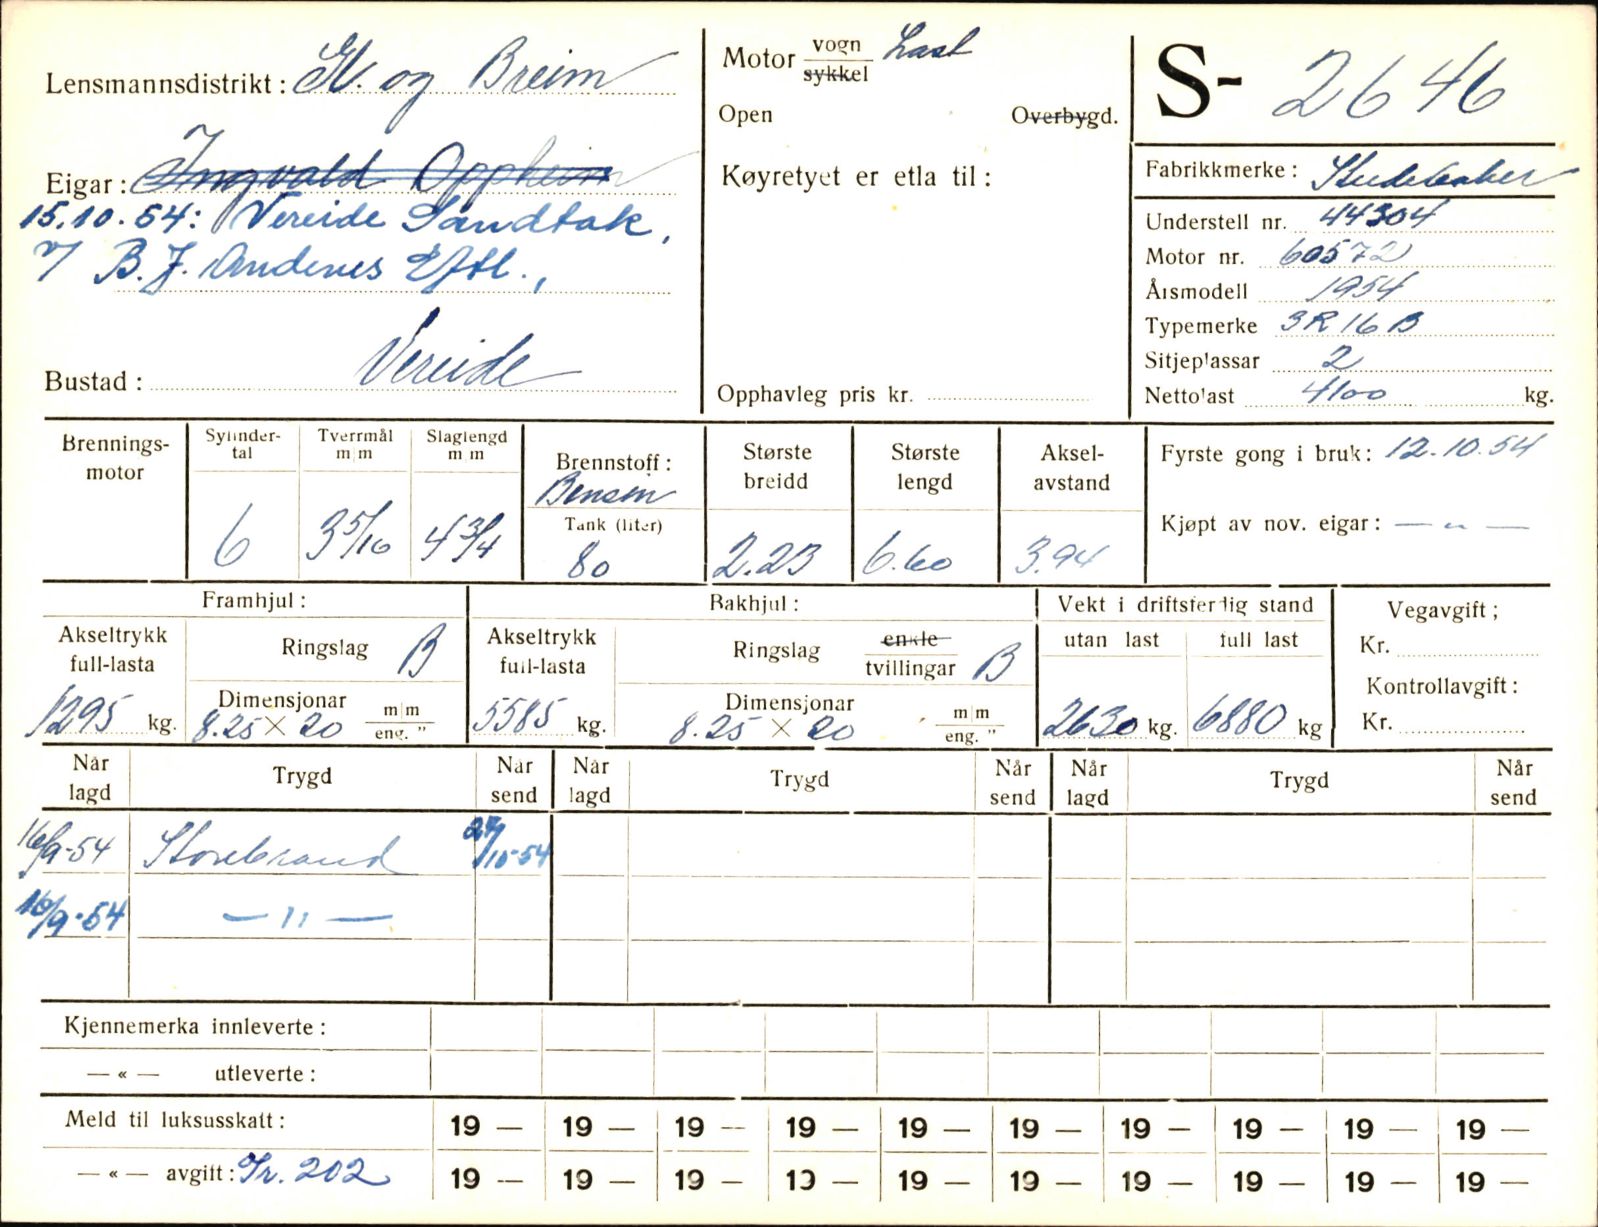 Lensmannsdistrikt: Gl. og Breim
Eigar: Ingvald Oppheim
15.10.54: Vereide Sandtak,
v/ B. J. Andenes Eftf.,
Bustad: Vereide
Motor vogn Last
sykkel
Open Overbygd.
Køyretyet er etla til:
Opphavleg pris kr.
S- 2646
Fabrikkmerke: Studebaker
Understell nr. 44304
Motor nr. 60572
Årsmodell 1954
Typemerke 3R 16 B
Sitjeplassar 2
Nettolast 4100 kg.
Brennings-
motor
Sylinder-
tal
6
Tverrmål
m/m
3 5/16
Slaglengd
m/m
4 3/4
Brennstoff:
Bensin
Tank (liter)
80
Største
breidd
2.23
Største
lengd
6.60
Aksel-
avstand
3.94
Fyrste gong i bruk: 12.10.54
Kjøpt av nov. eigar: — „ —
Framhjul:
Akseltrykk
full-lasta
1295 kg.
Ringslag B
Dimensjonar
8.25 × 20 m/m
eng. "
Bakhjul:
Akseltrykk
full-lasta
5585 kg.
Ringslag enkle
tvillingar B
Dimensjonar
8.25 × 20 m/m
eng. "
Vekt i driftsferdig stand
utan last full last
2630 kg. 6880 kg
Vegavgift;
Kr.
Kontrollavgift:
Kr.
Når
lagd Trygd Når
send Når
lagd Trygd Når
send Når
lagd Trygd Når
send
16/9-54 Storebrand /10-54
16/9-54 — 11 —
Kjennemerka innleverte:
— « — utleverte:
Meld til luksusskatt: 19 — 19 — 19 — 19 — 19 — 19 — 19 — 19 — 19 — 19 —
— « — avgift: Tr. 202 19 — 19 — 19 — 19 — 19 — 19 — 19 — 19 — 19 — 19 —